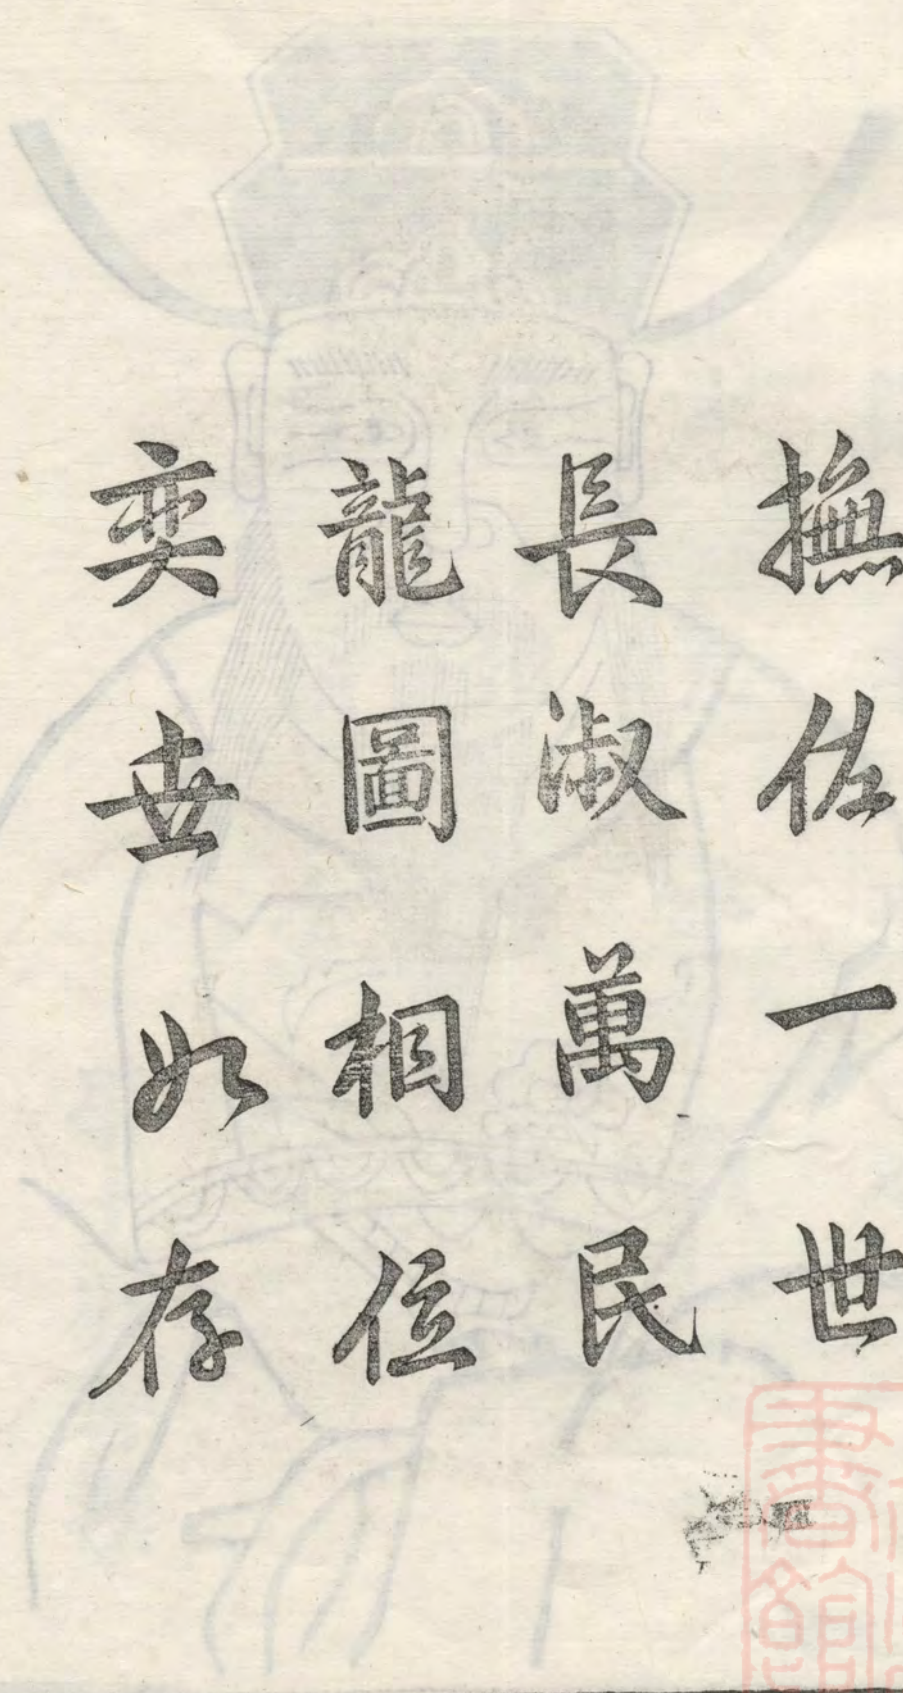 撫佐一世
長淑萬民
龍圖相位
奕世如存
書館